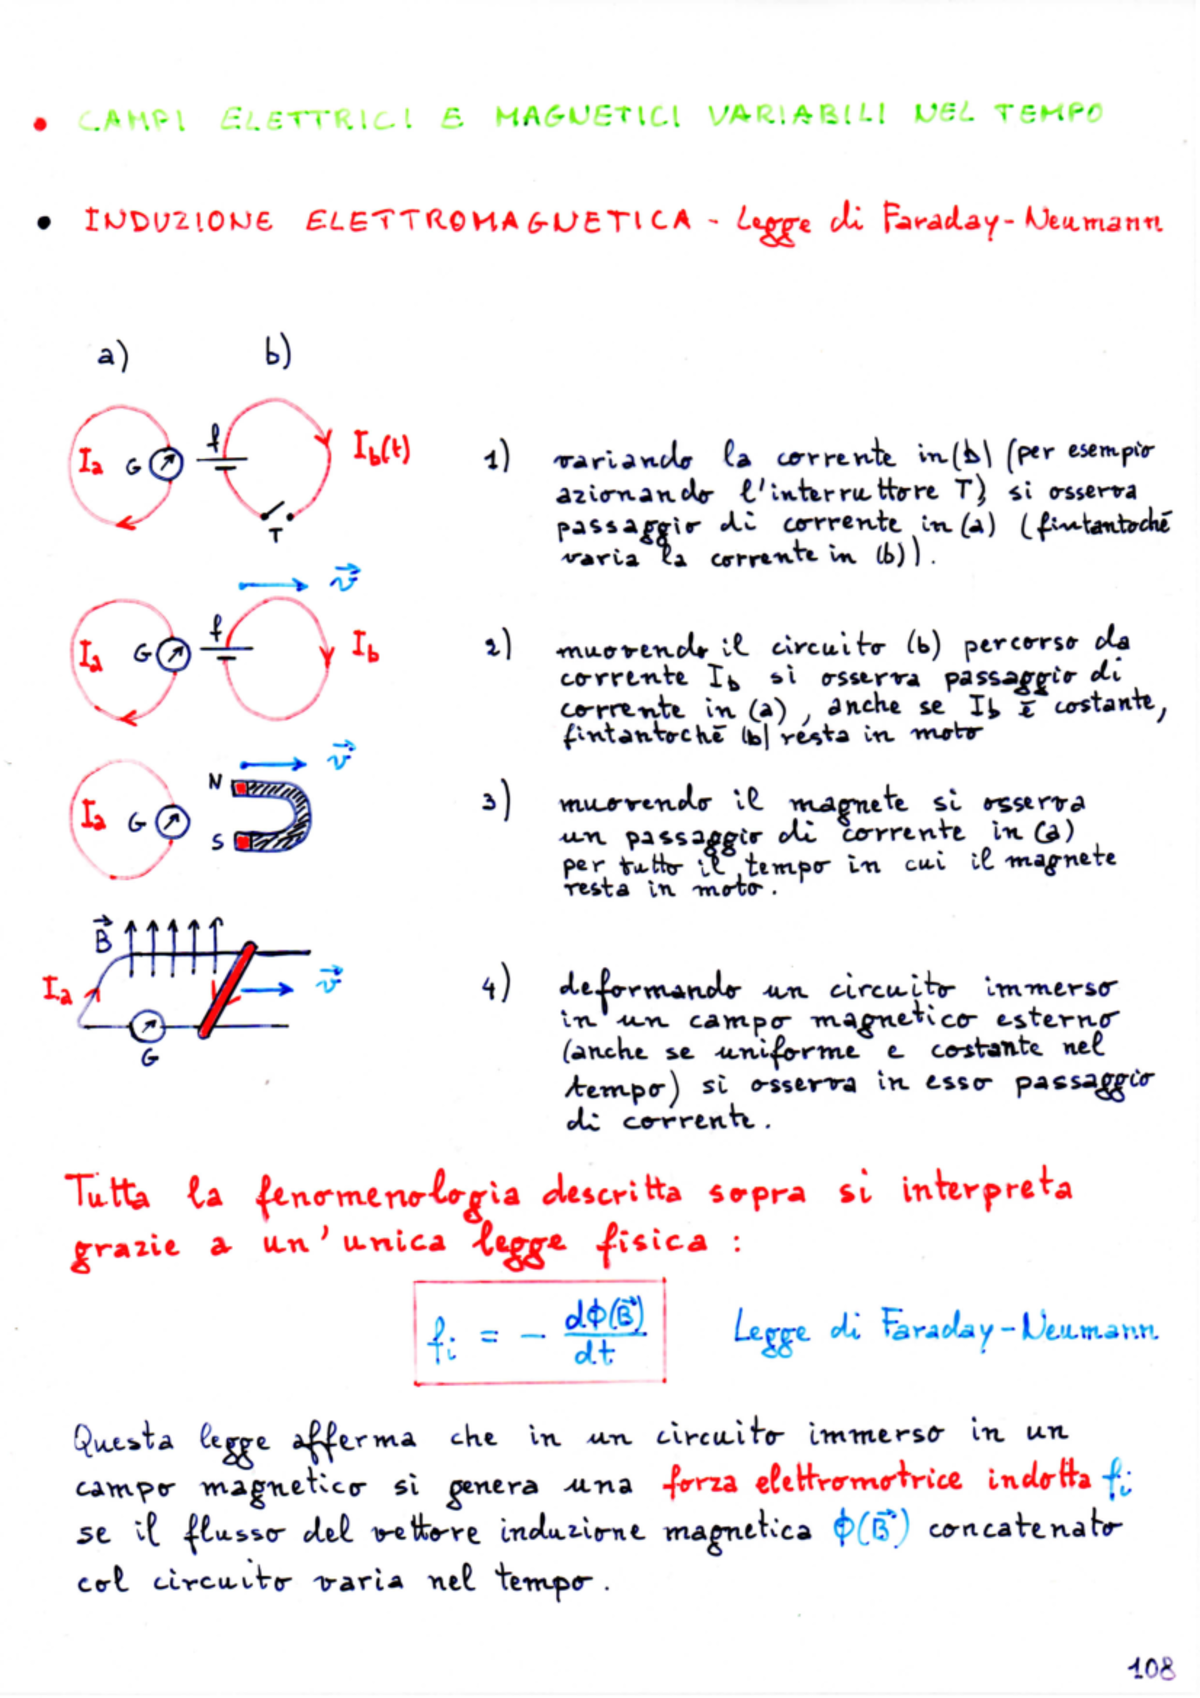 • CAMPI ELETTRICI E MAGNETICI VARIABILI NEL TEMPO
• INDUZIONE ELETTROMAGNETICA - Legge di Faraday-Neumann
a) b)
Ia G f Ib(t)
T
1) variando la corrente in (b) (per esempio
azionando l'interruttore T) si osserva
passaggio di corrente in (a) (fintantochè
varia la corrente in (b)).
v⃗
Ia G f Ib
2) muovendo il circuito (b) percorso da
corrente Ib si osserva passaggio di
corrente in (a), anche se Ib è costante,
fintantochè (b) resta in moto
v⃗
N
Ia G
S
3) muovendo il magnete si osserva
un passaggio di corrente in (a)
per tutto il tempo in cui il magnete
resta in moto.
B⃗
Ia v⃗
G
4) deformando un circuito immerso
in un campo magnetico esterno
(anche se uniforme e costante nel
tempo) si osserva in esso passaggio
di corrente.
Tutta la fenomenologia descritta sopra si interpreta
grazie a un'unica legge fisica :
fi = - dϕ(B⃗)/dt Legge di Faraday-Neumann
Questa legge afferma che in un circuito immerso in un
campo magnetico si genera una forza elettromotrice indotta fi
se il flusso del vettore induzione magnetica ϕ(B⃗) concatenato
col circuito varia nel tempo.
108